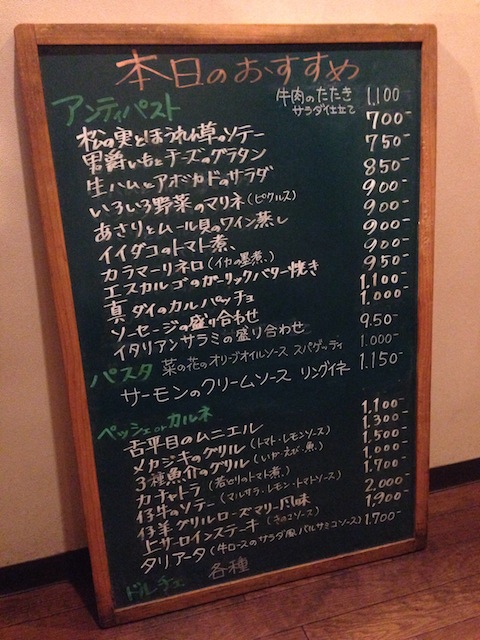 本日のおすすめ
アンティパスト
牛肉のたたき 1,100
サラダ仕立て
松の実とほうれん草のソテー 700-
男爵いもとチーズのグラタン 750-
生ハムとアボカドのサラダ 850-
いろいろ野菜のマリネ(ピクルス) 900-
あさりとムール貝のワイン蒸し 900-
イイダコのトマト煮、 900-
カラマーリネロ(イカの墨煮、) 900-
エスカルゴのガーリックバター焼き 950-
真ダイのカルパッチョ 1,100-
ソーセージの盛り合わせ 1,000-
イタリアンサラミの盛り合わせ 950-
パスタ 菜の花のオリーブオイルソース スパゲッティ 1.000-
サーモンのクリームソース リングイネ 1.150-
ペッシェorカルネ
舌平目のムニエル 1,100-
メカジキのグリル(トマト・レモンソース) 1,300-
3種魚介のグリル(いか・えび・魚、) 1,500-
カチャトラ(若どりのトマト煮、) 1,000-
仔牛のソテー(マルサラ・レモン・トマトソース) 1.700-
仔羊グリルローズマリー風味 2,000-
上サーロインステーキ(きのこソース) 1,900-
タリアータ(牛ロースのサラダ風バルサミコソース) 1.700-
ドルチェ 各種